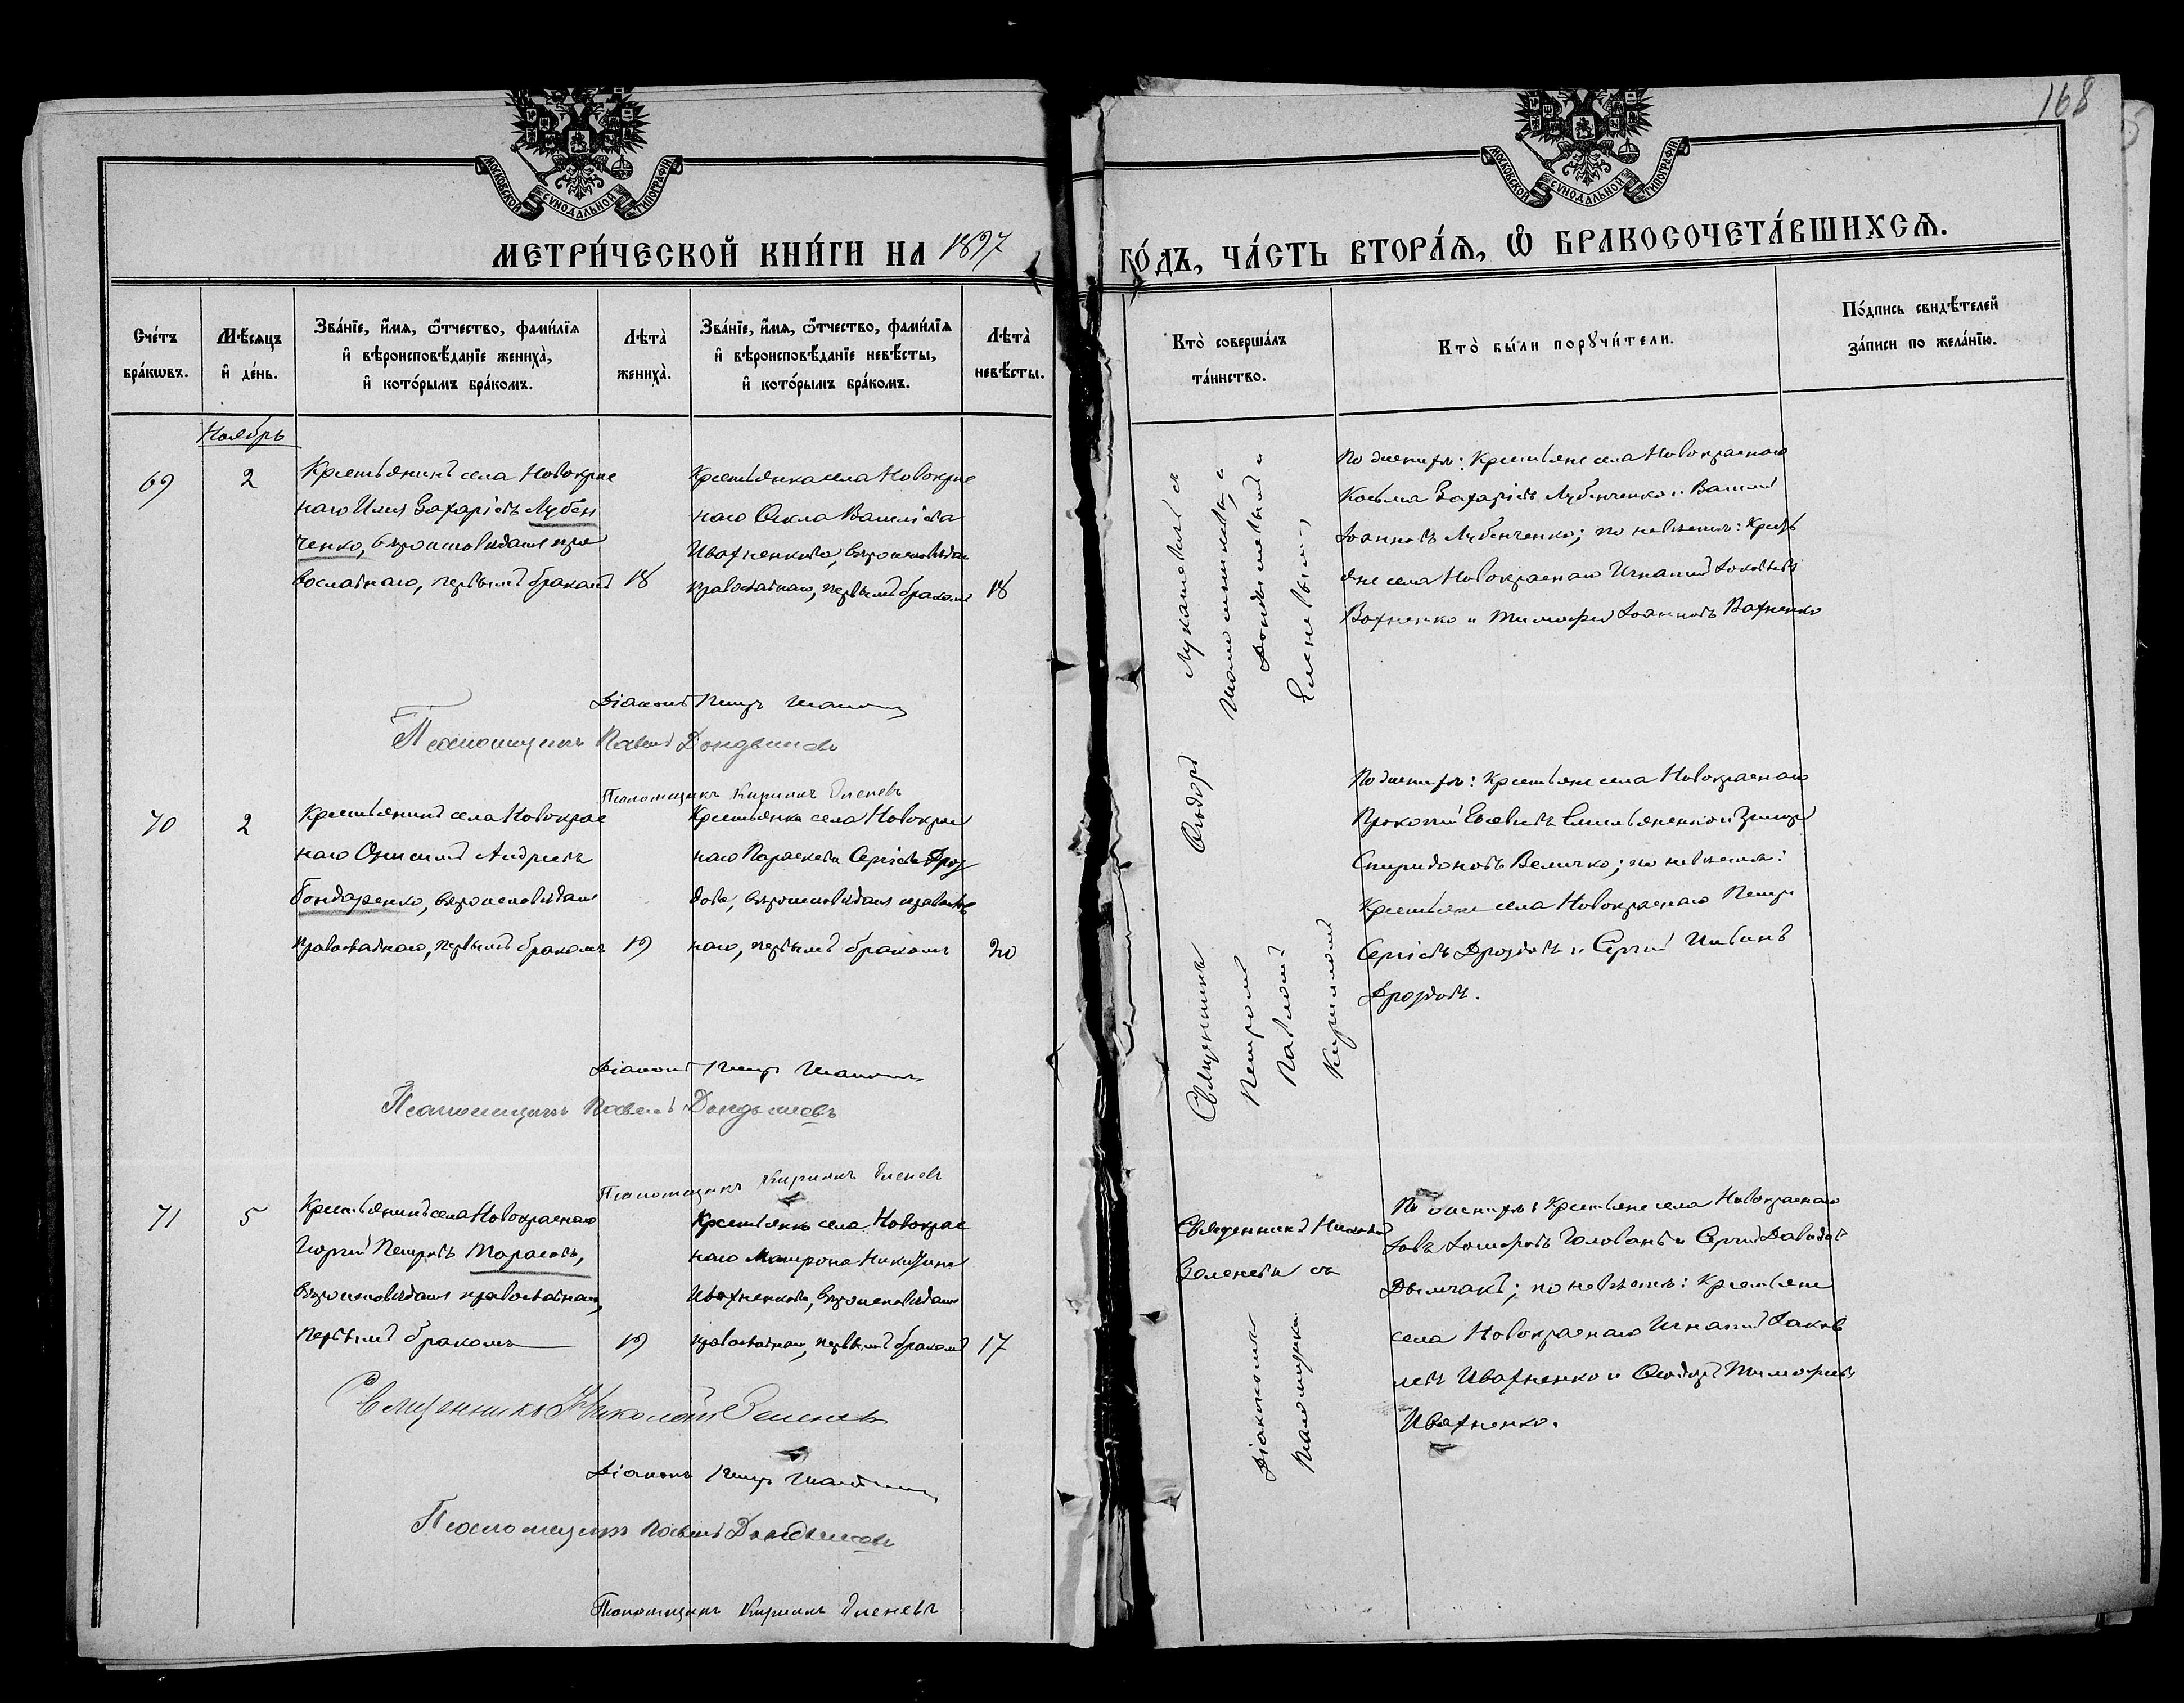 168
МОСКОВСКОЙ СѴНОДАЛЬНОЙ ТИПОГРАФІИ
МОСКОВСКОЙ СѴНОДАЛЬНОЙ ТИПОГРАФІИ
МЕТРИ́ЧЕСКОЙ КНИ́ГИ НА 1897
ГО́ДЪ, ЧА́СТЬ ВТОРА́Ѧ, Ѽ БРАКОСОЧЕТА́ВШИХСѦ.
Сче́тъ
бра́кѡвъ.
Мѣ́сѧцъ
и҆ де́нь.
Зва́нїе, и҆́мѧ, ѻ҆́тчество, фами́лїѧ
и҆ вѣроисповѣ́данїе жениха̀,
и҆ кото́рымъ бра́комъ.
Лѣта̀
жениха̀.
Зва́нїе, и҆́мѧ, ѻ҆́тчество, фами́лїѧ
и҆ вѣроисповѣ́данїе невѣ́сты,
и҆ кото́рымъ бра́комъ.
Лѣта̀
невѣ́сты.
Кто̀ соверша́лъ
та́инство.
Кто̀ бы́ли порꙋчи́тели.
По́дпись свидѣ́телей
за́писи по жела́нїю.
Ноябрь
69
2
Крестьянинъ села Новокрас
наго Илія Захаріевъ Лубен
ченко, вѣроисповѣданія пра
вославнаго, первымъ бракомъ
18
Крестьянка села Новокрас
наго Ѳекла Василіева
Ивахненкова, вѣроисповѣдан
православнаго, первымъ бракомъ
18
По женихѣ: Крестьяне села Новокраснаго
Косьма Захаріевъ Лубенченко и Василій
Іоанновъ Лубенченко; по невѣстѣ: Кресть
яне села Новокраснаго Игнатій Іаковлевъ
Вахненко и Тимофей Іоанновъ Вахненко
Діаконъ Петръ
Псаломщикъ Павелъ
Псаломщикъ Кириллъ Еленевъ
70
2
Крестьянинъ села Новокрас
наго Онисимъ Андреевъ
Бондаренко, вѣроисповѣданія
православнаго, первымъ бракомъ
19
Крестьянка села Новокрас
наго Параскева Сергіева Дроз
дова, вѣроисповѣданія православ
наго, первымъ бракомъ
20
По женихѣ: Крестьяне села Новокраснаго
Прокопій Емельяненко и
Спиридоновъ Величко; по невѣстѣ:
Крестьяне села Новокраснаго Петръ
Сергіевъ Дроздовъ и Сергій
Дроздовъ.
Священникъ Ѳеодоръ
Петромъ
Павломъ
Кирилломъ Еленевымъ
Діаконъ Петръ
Псаломщикъ Павелъ
Псаломщикъ Кириллъ Еленевъ
71
5
Крестьянинъ села Новокраснаго
Георгій Петровъ Тарасовъ,
вѣроисповѣданія православнаго,
первымъ бракомъ
19
Крестьянка села Новокрас
наго Матрона Никитина
Ивахненкова, вѣроисповѣданія
православнаго, первымъ бракомъ
17
Священникъ Николай
Зеленевъ съ
Діакономъ
Псаломщики
По женихѣ: Крестьяне села Новокраснаго
Іовъ Голованъ и Сергій Давидовъ
по невѣстѣ: Крестьяне
села Новокраснаго Игнатій Іаков
левъ Ивахненко и Ѳеодоръ Тимофеевъ
Ивахненко.
Священникъ Николай Зеленевъ
Діаконъ Петръ
Псаломщикъ Павелъ
Псаломщикъ Кириллъ Еленевъ